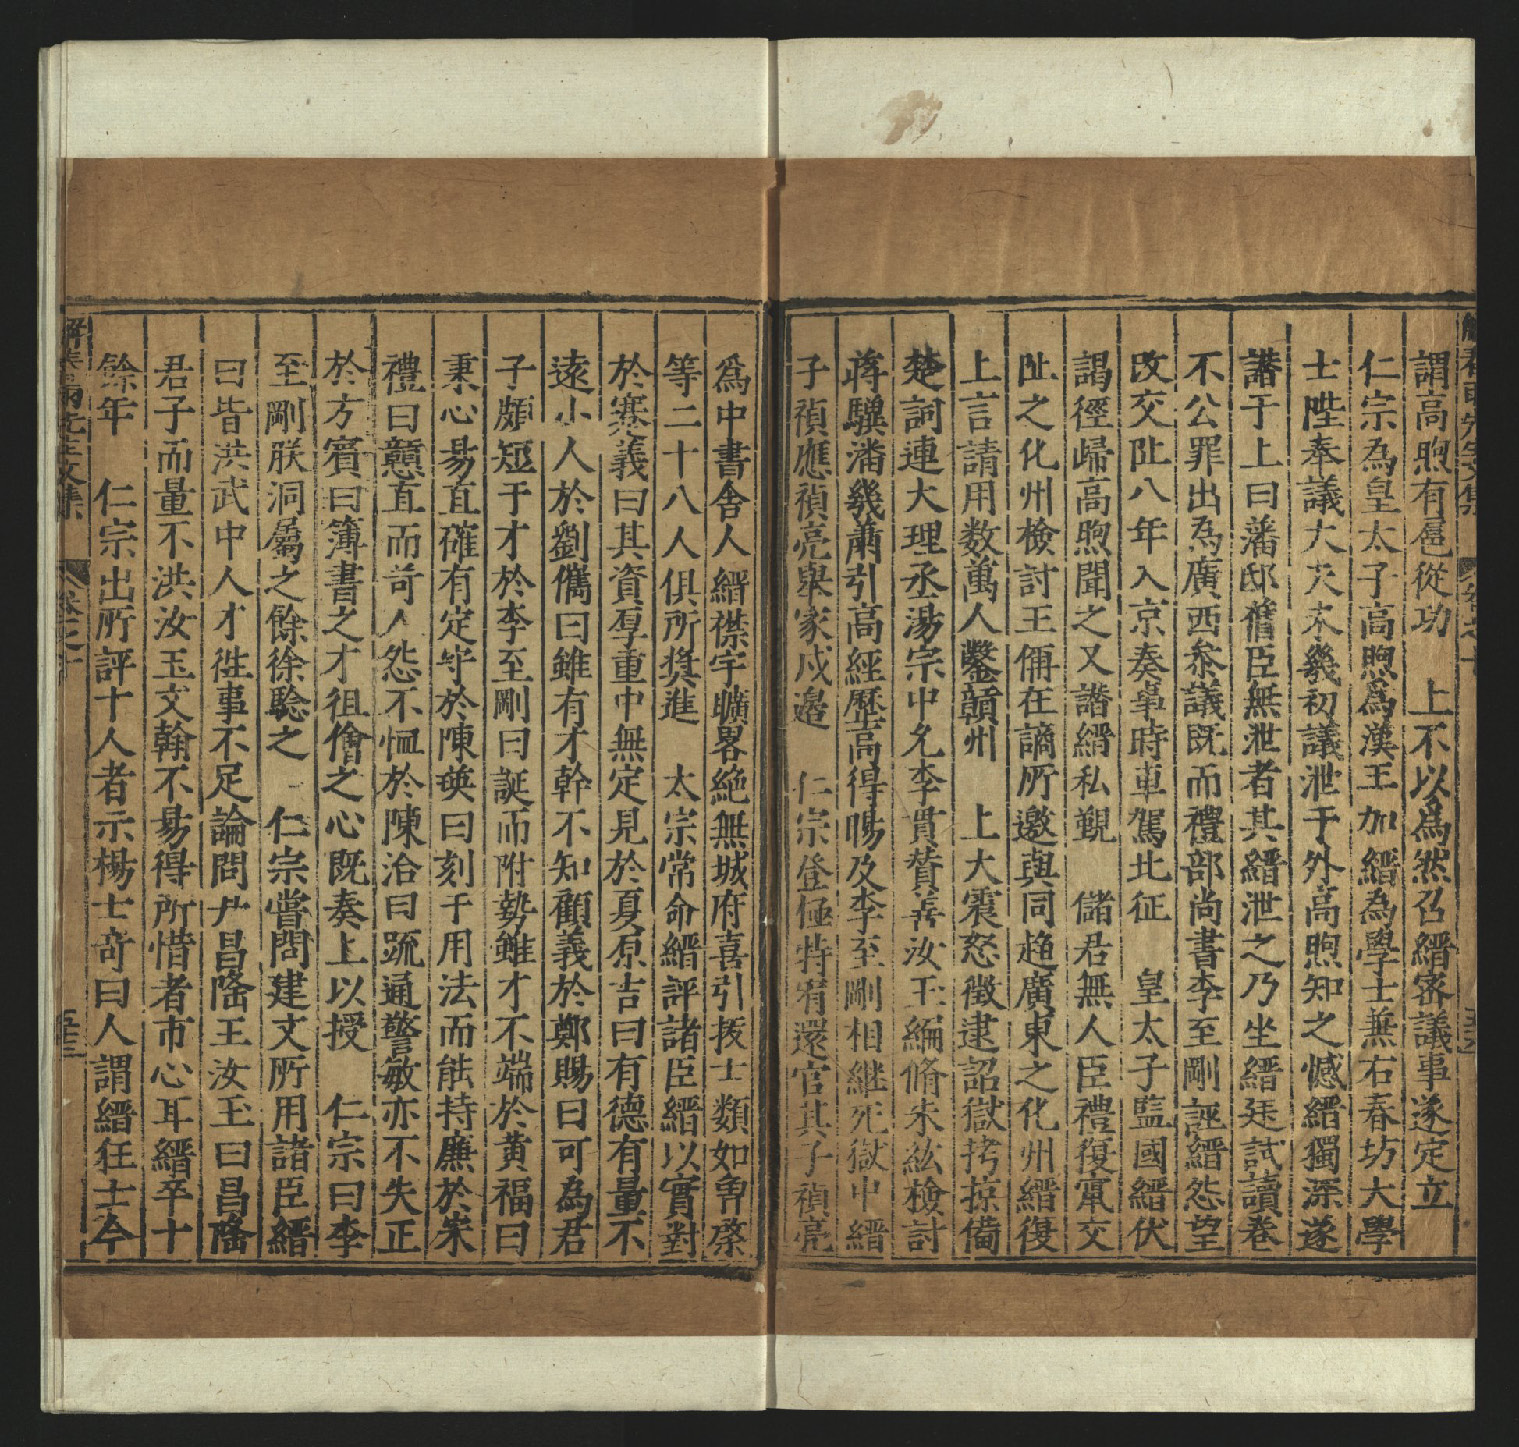 解春雨先生文集 卷之十
謂高煦有扈從功　上不以爲然召縉密議事遂定立
仁宗為皇太子高煦爲漢王加縉為學士兼右春坊大學
士陞奉議大夫未幾初議泄于外高煦知之憾縉獨深遂
譖于上曰藩邸舊臣無泄者其縉泄之乃坐縉廷試讀卷
不公罪出為廣西叅議既而禮部尚書李至剛誣縉怨望
改交阯八年入京奏事時車駕北征　皇太子監國縉伏
謁徑歸高煦聞之又譖縉私覲　儲君無人臣禮復寘交
阯之化州檢討王偁在謫所邀與同趨廣東之化州縉復
上言請用数萬人鑿贛州　上大震怒徵逮詔獄拷掠備
楚詞連大理丞湯宗中允李貫賛善汝玉編脩朱紘檢討
蔣驥潘畿蕭引高經歷高得暘及李至剛相継死獄中縉
子禎應禎亮舉家戍邉　仁宗登極特宥還官其子禎亮
爲中書舍人縉襟宇曠畧絶無城府喜引拔士類如曾棨
等二十八人俱所奬進　太宗常命縉評諸臣縉以實對
於蹇義曰其資厚重中無定見於夏原吉曰有德有量不
遠小人於劉儁曰雖有才幹不知顧義於鄭賜曰可為君
子頗短于才於李至剛曰誕而附勢雖才不端於黄福曰
秉心易直確有定守於陳瑛曰刻于用法而能持廉於宋
禮曰戇直而苛人怨不恤於陳洽曰疏通警敏亦不失正
於方賓曰簿書之才徂儈之心既奏上以授　仁宗曰李
至剛朕洞屬之餘徐騐之　仁宗嘗問建文所用諸臣縉
曰皆洪武中人才徃事不足論問尹昌隆王汝玉曰昌隆
君子而量不洪汝玉文翰不易得所惜者市心耳縉卒十
餘年　仁宗出所評十人者示楊士奇曰人謂縉狂士今
解春雨先生文集 卷之十